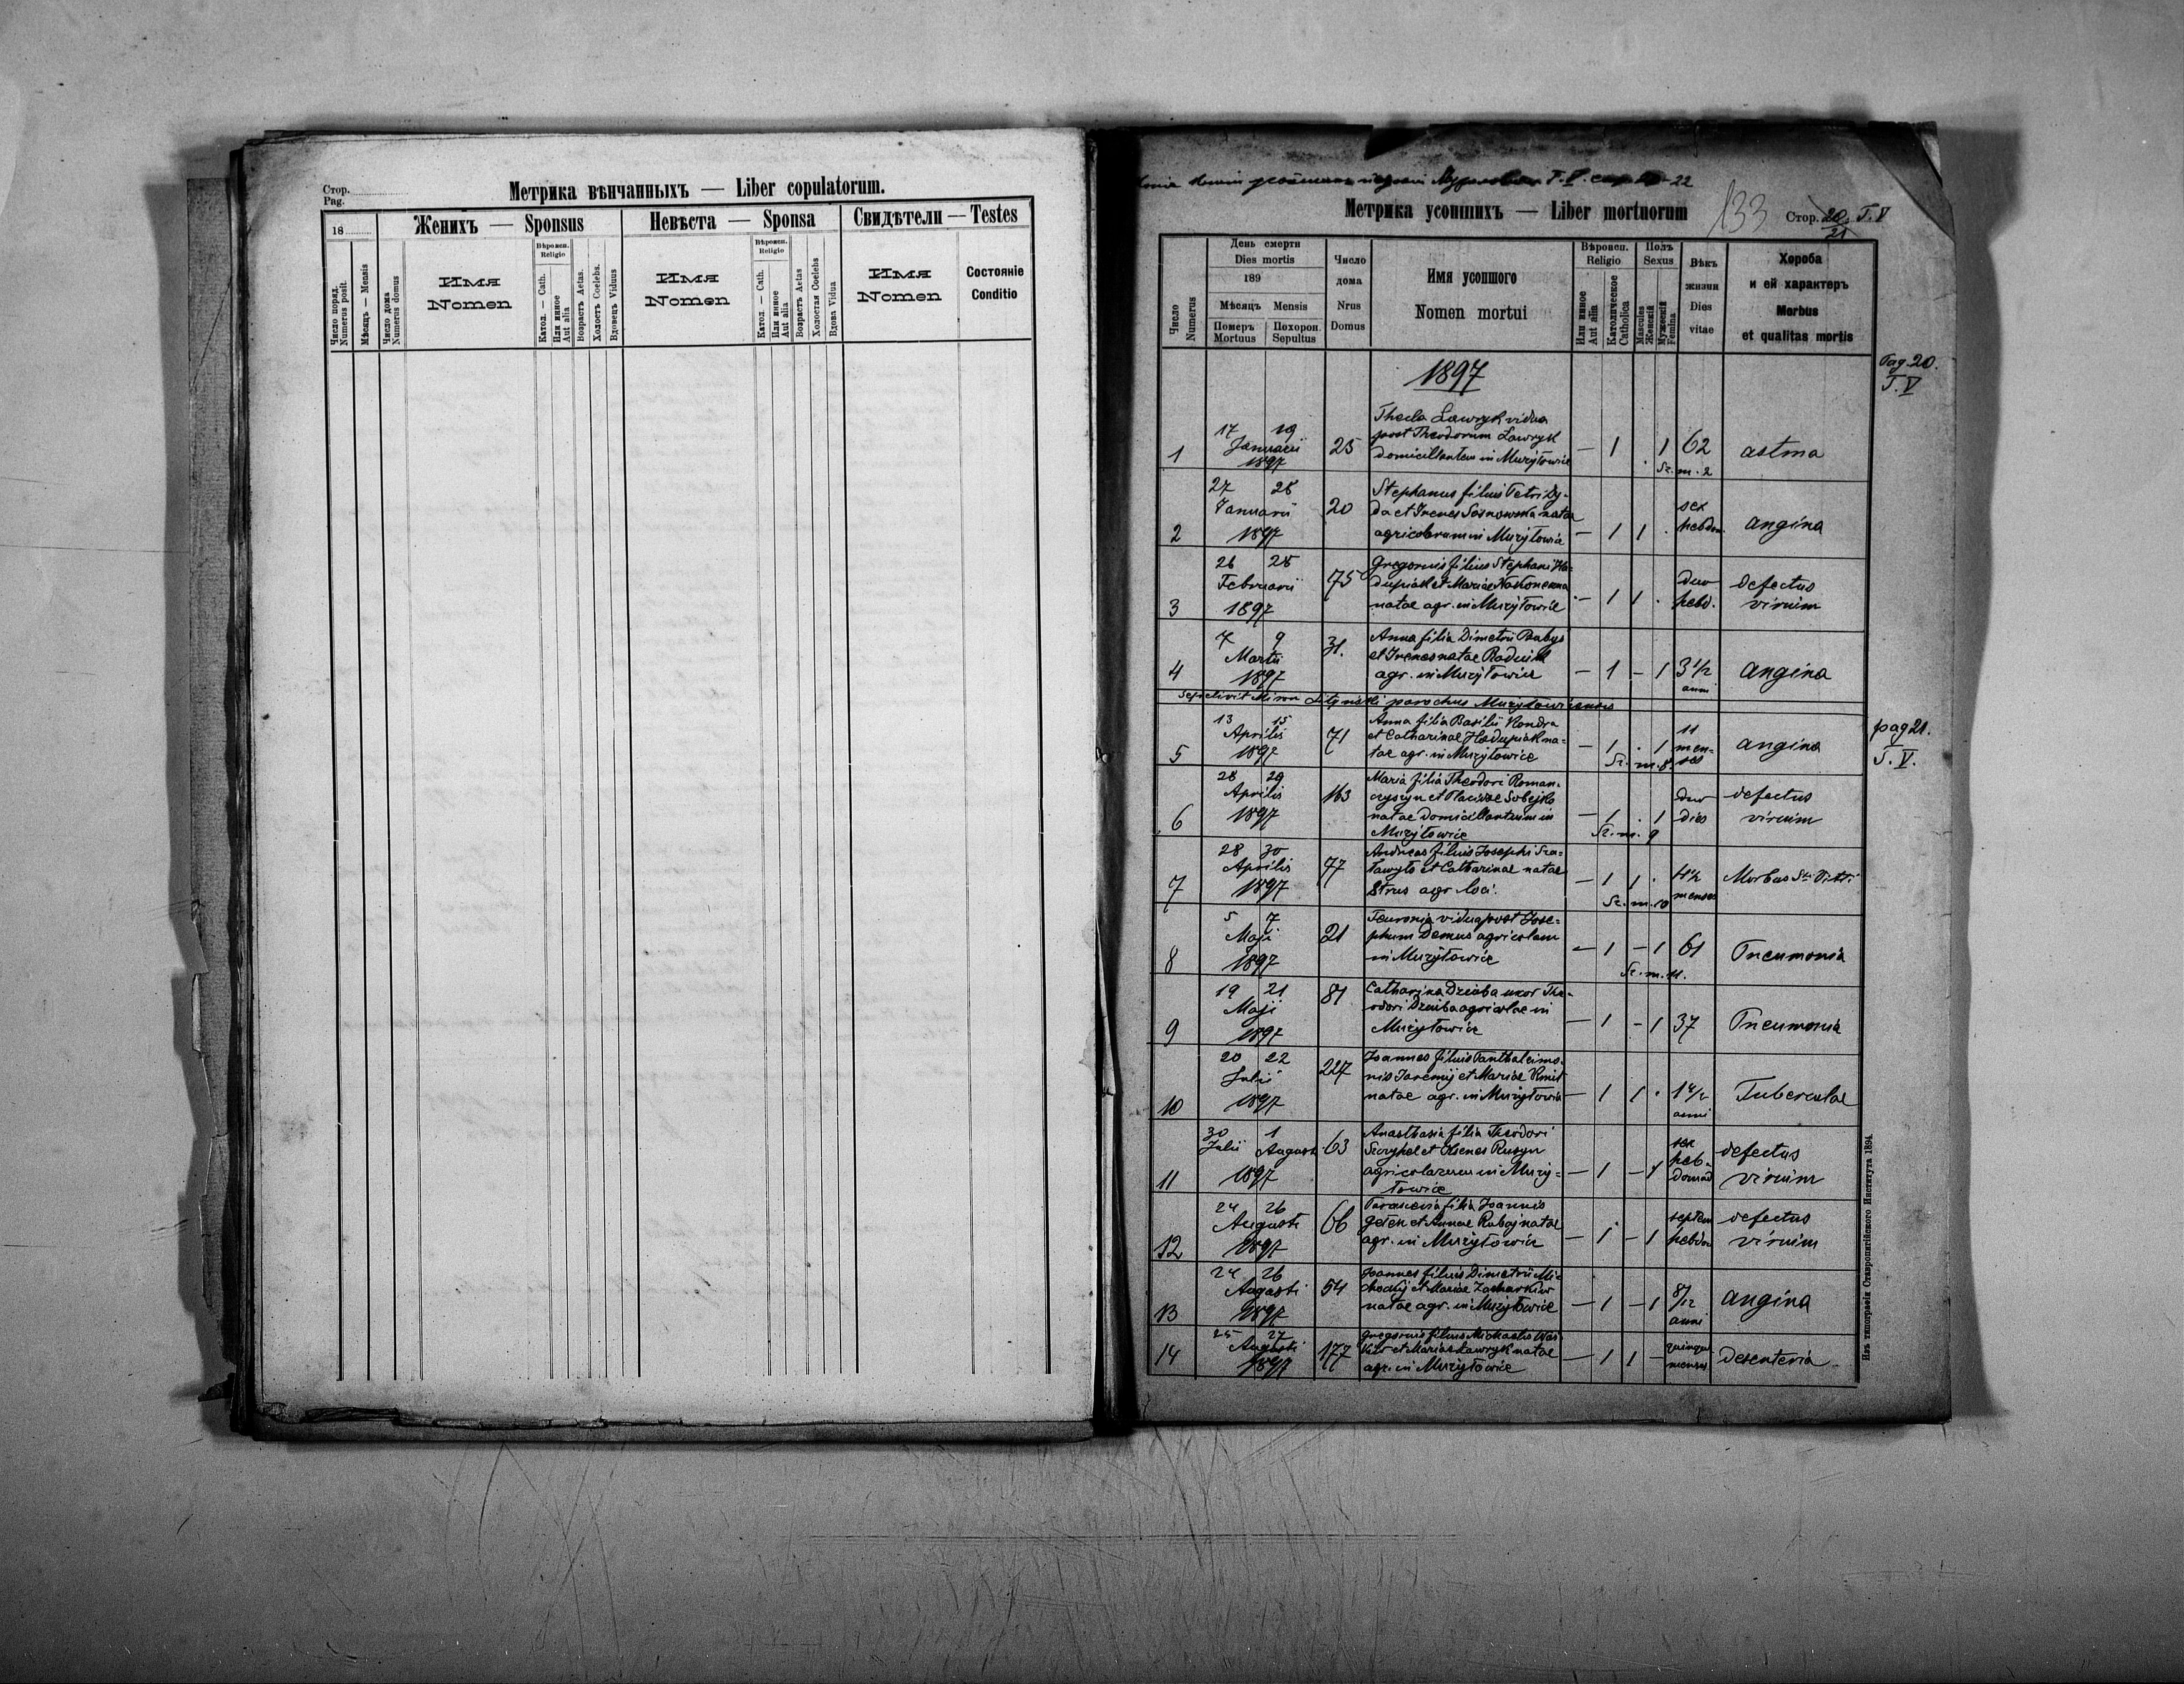 Стор.
Pag.
Метрика вѣнчанныхъ — Liber copulatorum.
18
Женихъ — Sponsus
Невѣста — Sponsa
Свидѣтели — Testes
Число поряд.
Numerus posit.
Мѣсяцъ — Mensis
Число дома
Numerus domus
Имя
Nomen
Вѣроисп.
Religio
Катол. — Cath.
Или инное
Aut alia
Возрастъ Aetas.
Холостъ Coelebs.
Вдовецъ Viduus
Имя
Nomen
Вѣроисп.
Religio
Катол. — Cath.
Или инное
Aut alia
Возрастъ Aetas
Холостая Coelebs
Вдова Vidua
Имя
Nomen
Состояніе
Conditio
T. V. 22
Метрика усопшихъ — Liber mortuorum
133
Стор. 20/21 T. V
Число
Numerus
День смерти
Dies mortis
189
Мѣсяцъ Mensis
Померъ
Mortuus
Похорон.
Sepultus
Число
дома
Nrus
Domus
Имя усопшого
Nomen mortui
Вѣроисп.
Religio
Или инное
Aut alia
Католическое
Catholica
Полъ
Sexus
Masculus
Женскій
Мужескій
Femina
Вѣкъ
жизни
Dies
vitae
Хороба
и ей характеръ
Morbus
et qualitas mortis
1897
Pag 20.
T. V
1
17 19
Januarii
1897
25
Thecla Ławryk vidua
post Theodorum Ławryk
domicillantem in Murzyłowice
— 1 . 1 62
m. 2
astma
2
27 28
Januarii
1897
20
Stephanus filius Petri Dy-
da et Irenes Sosnowska natae
agricolarum in Murzyłowice
— 1 1 .
sex
hebdom.
angina
3
26 28
Februarii
1897
75
Gregorius filius Stephani Ha-
dupiak et Mariae
natae agr. in Murzyłowice
— 1 1 .
duo
hebd.
defectus
virium
4
7 9
Martii
1897
31.
Anna filia Dimetri Babys
et Irenes natae
agr. in Murzyłowice
— 1 – 1 3 1/2
anni
angina
Sepelivit Miron parochus Murzyłowicensis
pag 21.
T. V.
5
13 15
Aprilis
1897
71
Anna filia Basilii Kondra
et Catharinae Hadupiak na-
tae agr. in Murzyłowice
— 1 . 1
11
men-
ses
m. 8
angina
6
28 29
Aprilis
1897
163
Maria filia Theodori Roman-
czyszyn et
natae domicillantium in
Murzyłowice
— 1 . 1
duo
dies
m. 9
defectus
virium
7
28 30
Aprilis
1897
77
Andreas filius Josephi
et Catharinae natae
Strus agr. loci.
— 1 1 .
menses
m. 10
Morbus Sti Viti
8
5 7
Maji
1897
21
vidua post Jose-
phum Demus agricolam
in Murzyłowice
— 1 – 1 61
m. 11.
Pneumonia
9
19 21
Maji
1897
81
Catharina Dziuba uxor The-
odori Dziuba agricolae in
Murzyłowice
— 1 – 1 37
Pneumonia
10
20 22
Julii
1897
227
Joannes filius Panthaleimo-
nis Jaremij et Mariae Kmit
natae agr. in Murzyłowice
— 1 1 .
anni
Tuberculae
11
30 1
Julii Augusti
1897
63
Anasthasia filia Theodori
et Rusyn
agricolarum in Murzy-
łowice
— 1 – 1
sex
heb-
domad
defectus
virium
12
24 26
Augusti
1897
66
Parascevia filia Joannis
et Annae Rubaj natae
agr. in Murzyłowice
— 1 – 1
septem
hebdom
defectus
virium
13
24 26
Augusti
1897
54
Joannes filius Dimetrii
et Mariae Zacharkiw
natae agr. in Murzyłowice
— 1 – 1
8/12
anni
angina
14
25 27
Augusti
1897
177
Gregorius filius Michaelis
et Mariae Ławryk natae
agr. in Murzyłowice
— 1 1 –
quinque
menses
desenteria
Изъ типографіи Ставропигійского Института 1894.